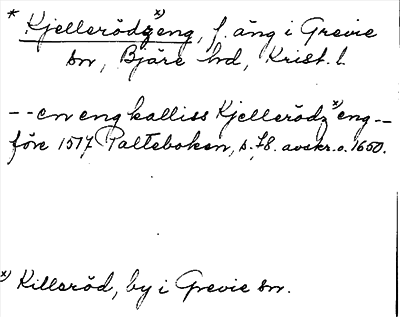 * Kjellerödz x) eng, f. äng i Grevie
sn, Bjäre hd, Krist. l.
-- en eng kalliss Kjellerödz x) eng --
före 1517 Palteboken, s. 78. avskr. o. 1650.
x) Killeröd, by i Grevie sn.